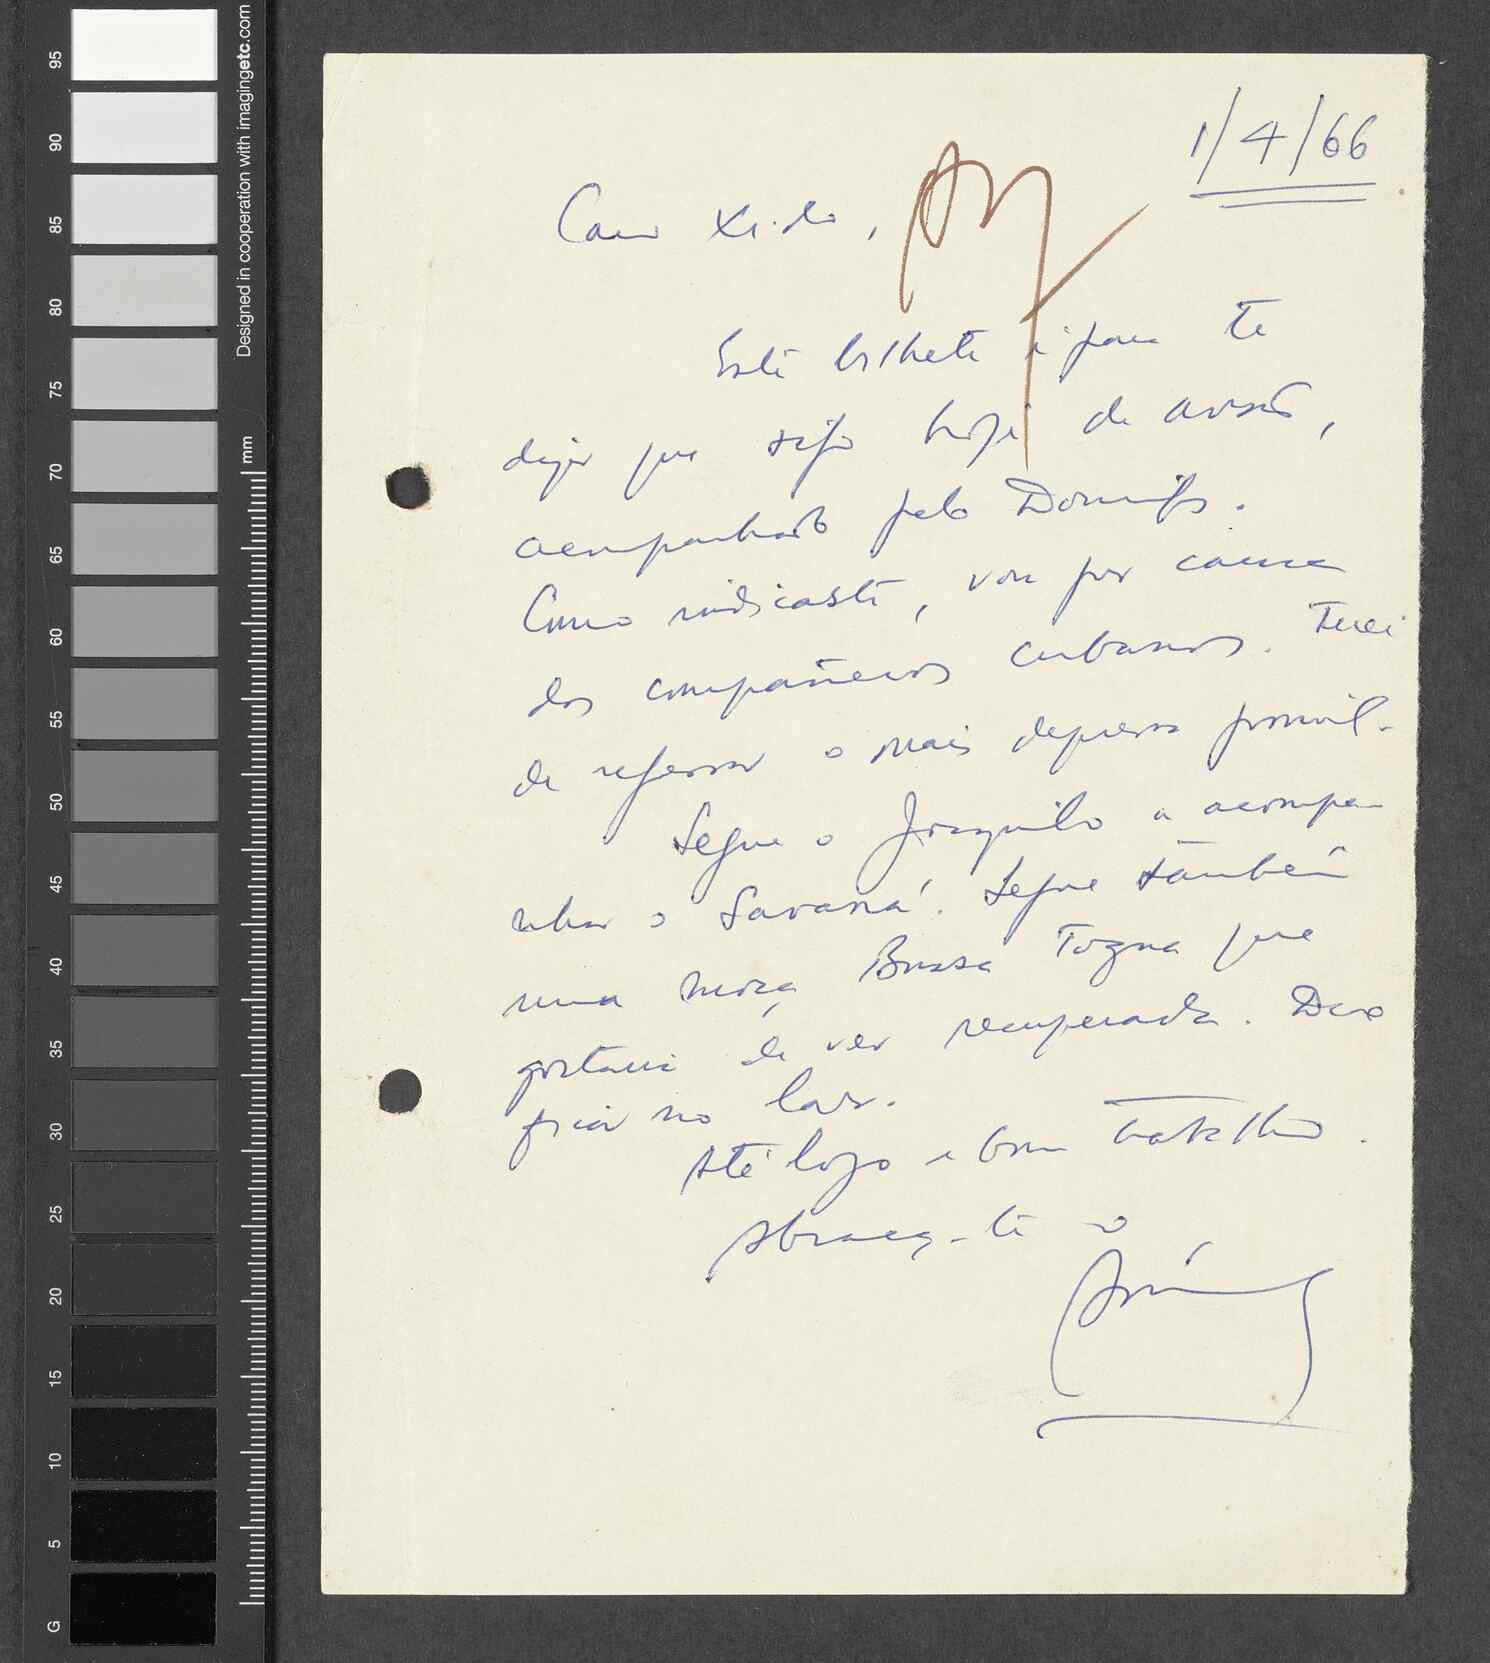 1/4/66
Caro Xido,
Este bilhete é para te
dizer que sigo hoje de avião,
acompanhado pelo Domingos.
Como indicaste, vou por causa
dos compañeros cubanos. Terei
de regressar o mais depressa possível.
Segue o Joaquim a acompa-
nhar o Savaná. Segue também
uma moça Bussa Togna que
gostaria de ver recuperada. Deve
ficar no lar.
Até logo e bom trabalho.
Abraça-te o
Designed in cooperation with imagingetc.com
mm
95
90
85
80
75
70
65
60
55
50
45
40
35
30
25
20
15
10
5
G